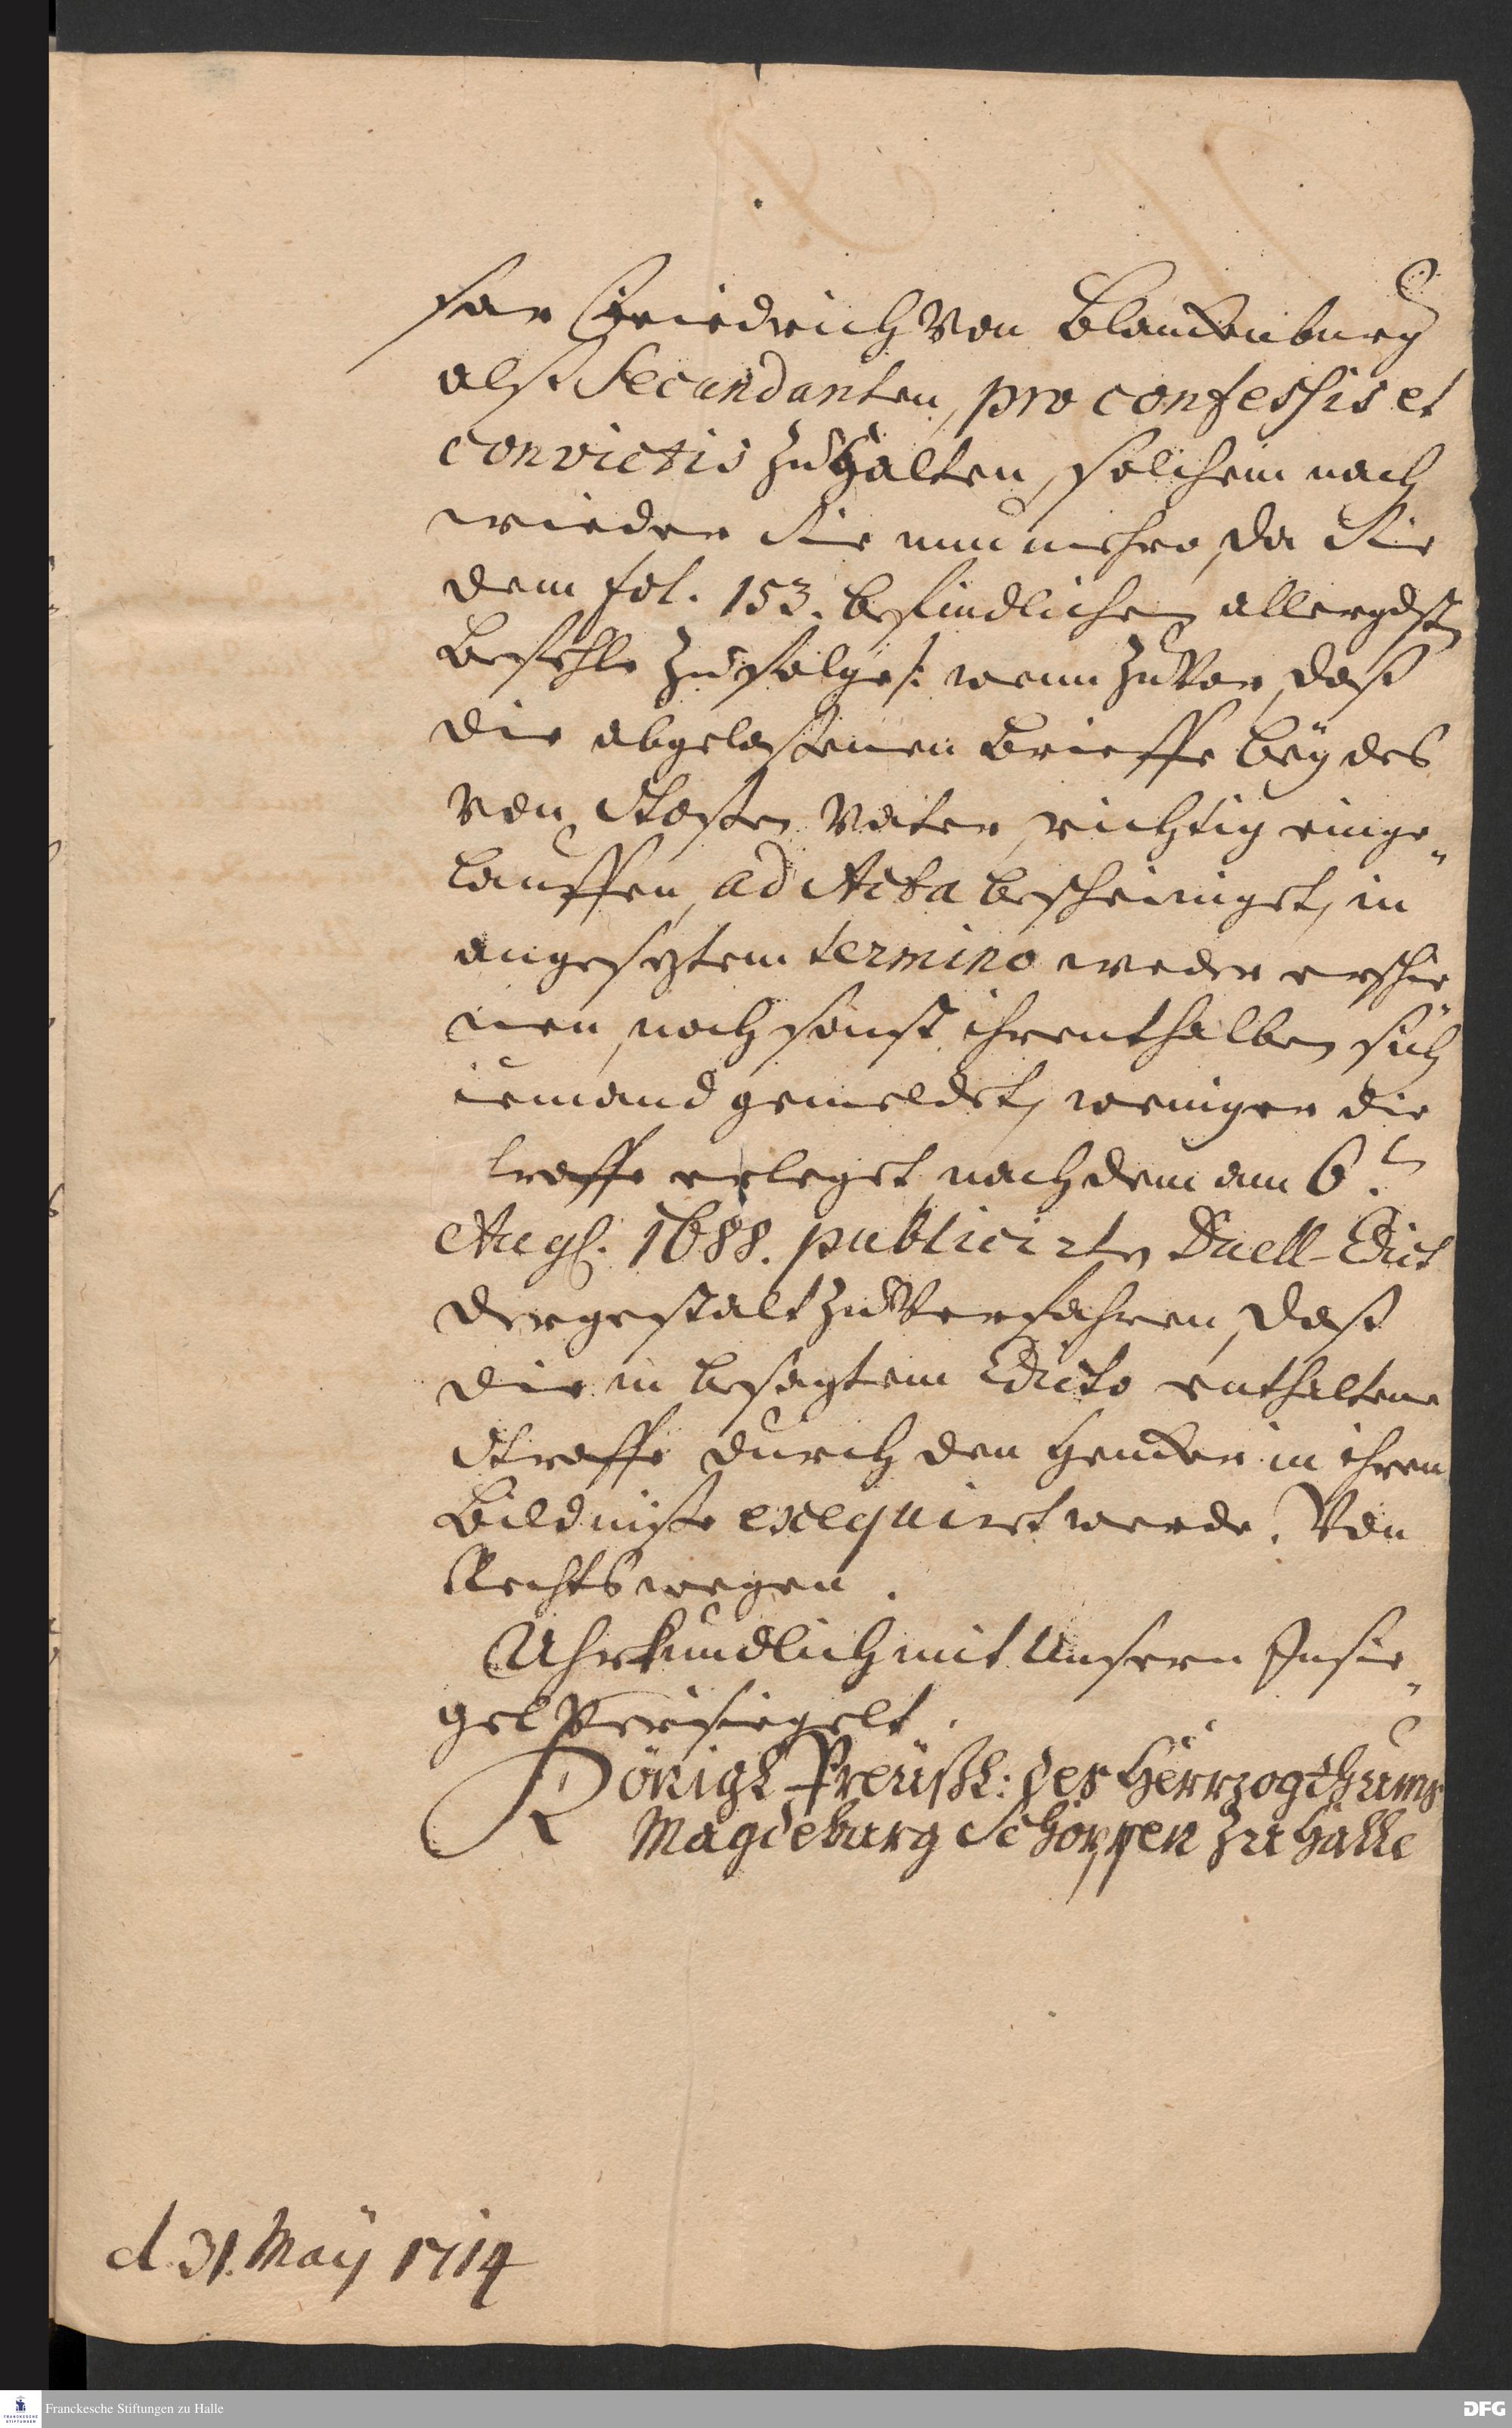 sar Friedrich von Blanckenburg
alß Secundanten, pro confessis et
convictis zu halten, solchem nach
wieder Sie nunmehro, da Sie
dem fol. 153. befindlichen allergdst.
Befehle zu folge /: wenn zuvor, daß
die abgelaßenen Brieffe bey des
von Vater, richtig einge„
lauffen, ad Acta bescheiniget, in
angeseztem termino weder erschie„
nen, noch sonst ihrenthalben sich
iemand gemeldet, weniger die
traffe erleget, nach dem am 6.t
Aug. 1688. publicirten Duell-Edict
dergestalt zu verfahren, daß
die in besagtem Edicto enthaltene
Straffe durch den Hencker in ihren
Bildniße exequiret werde. Von
Rechts wegen.
Uhrkundlich mit Unsern Insie„
gel versiegelt.
Königl. Preußl: des Herrzogthums
Magdeburg Schöppen zu Halle
d. 31. Maÿ 1714
Franckesche Stiftungen zu Halle
DFG